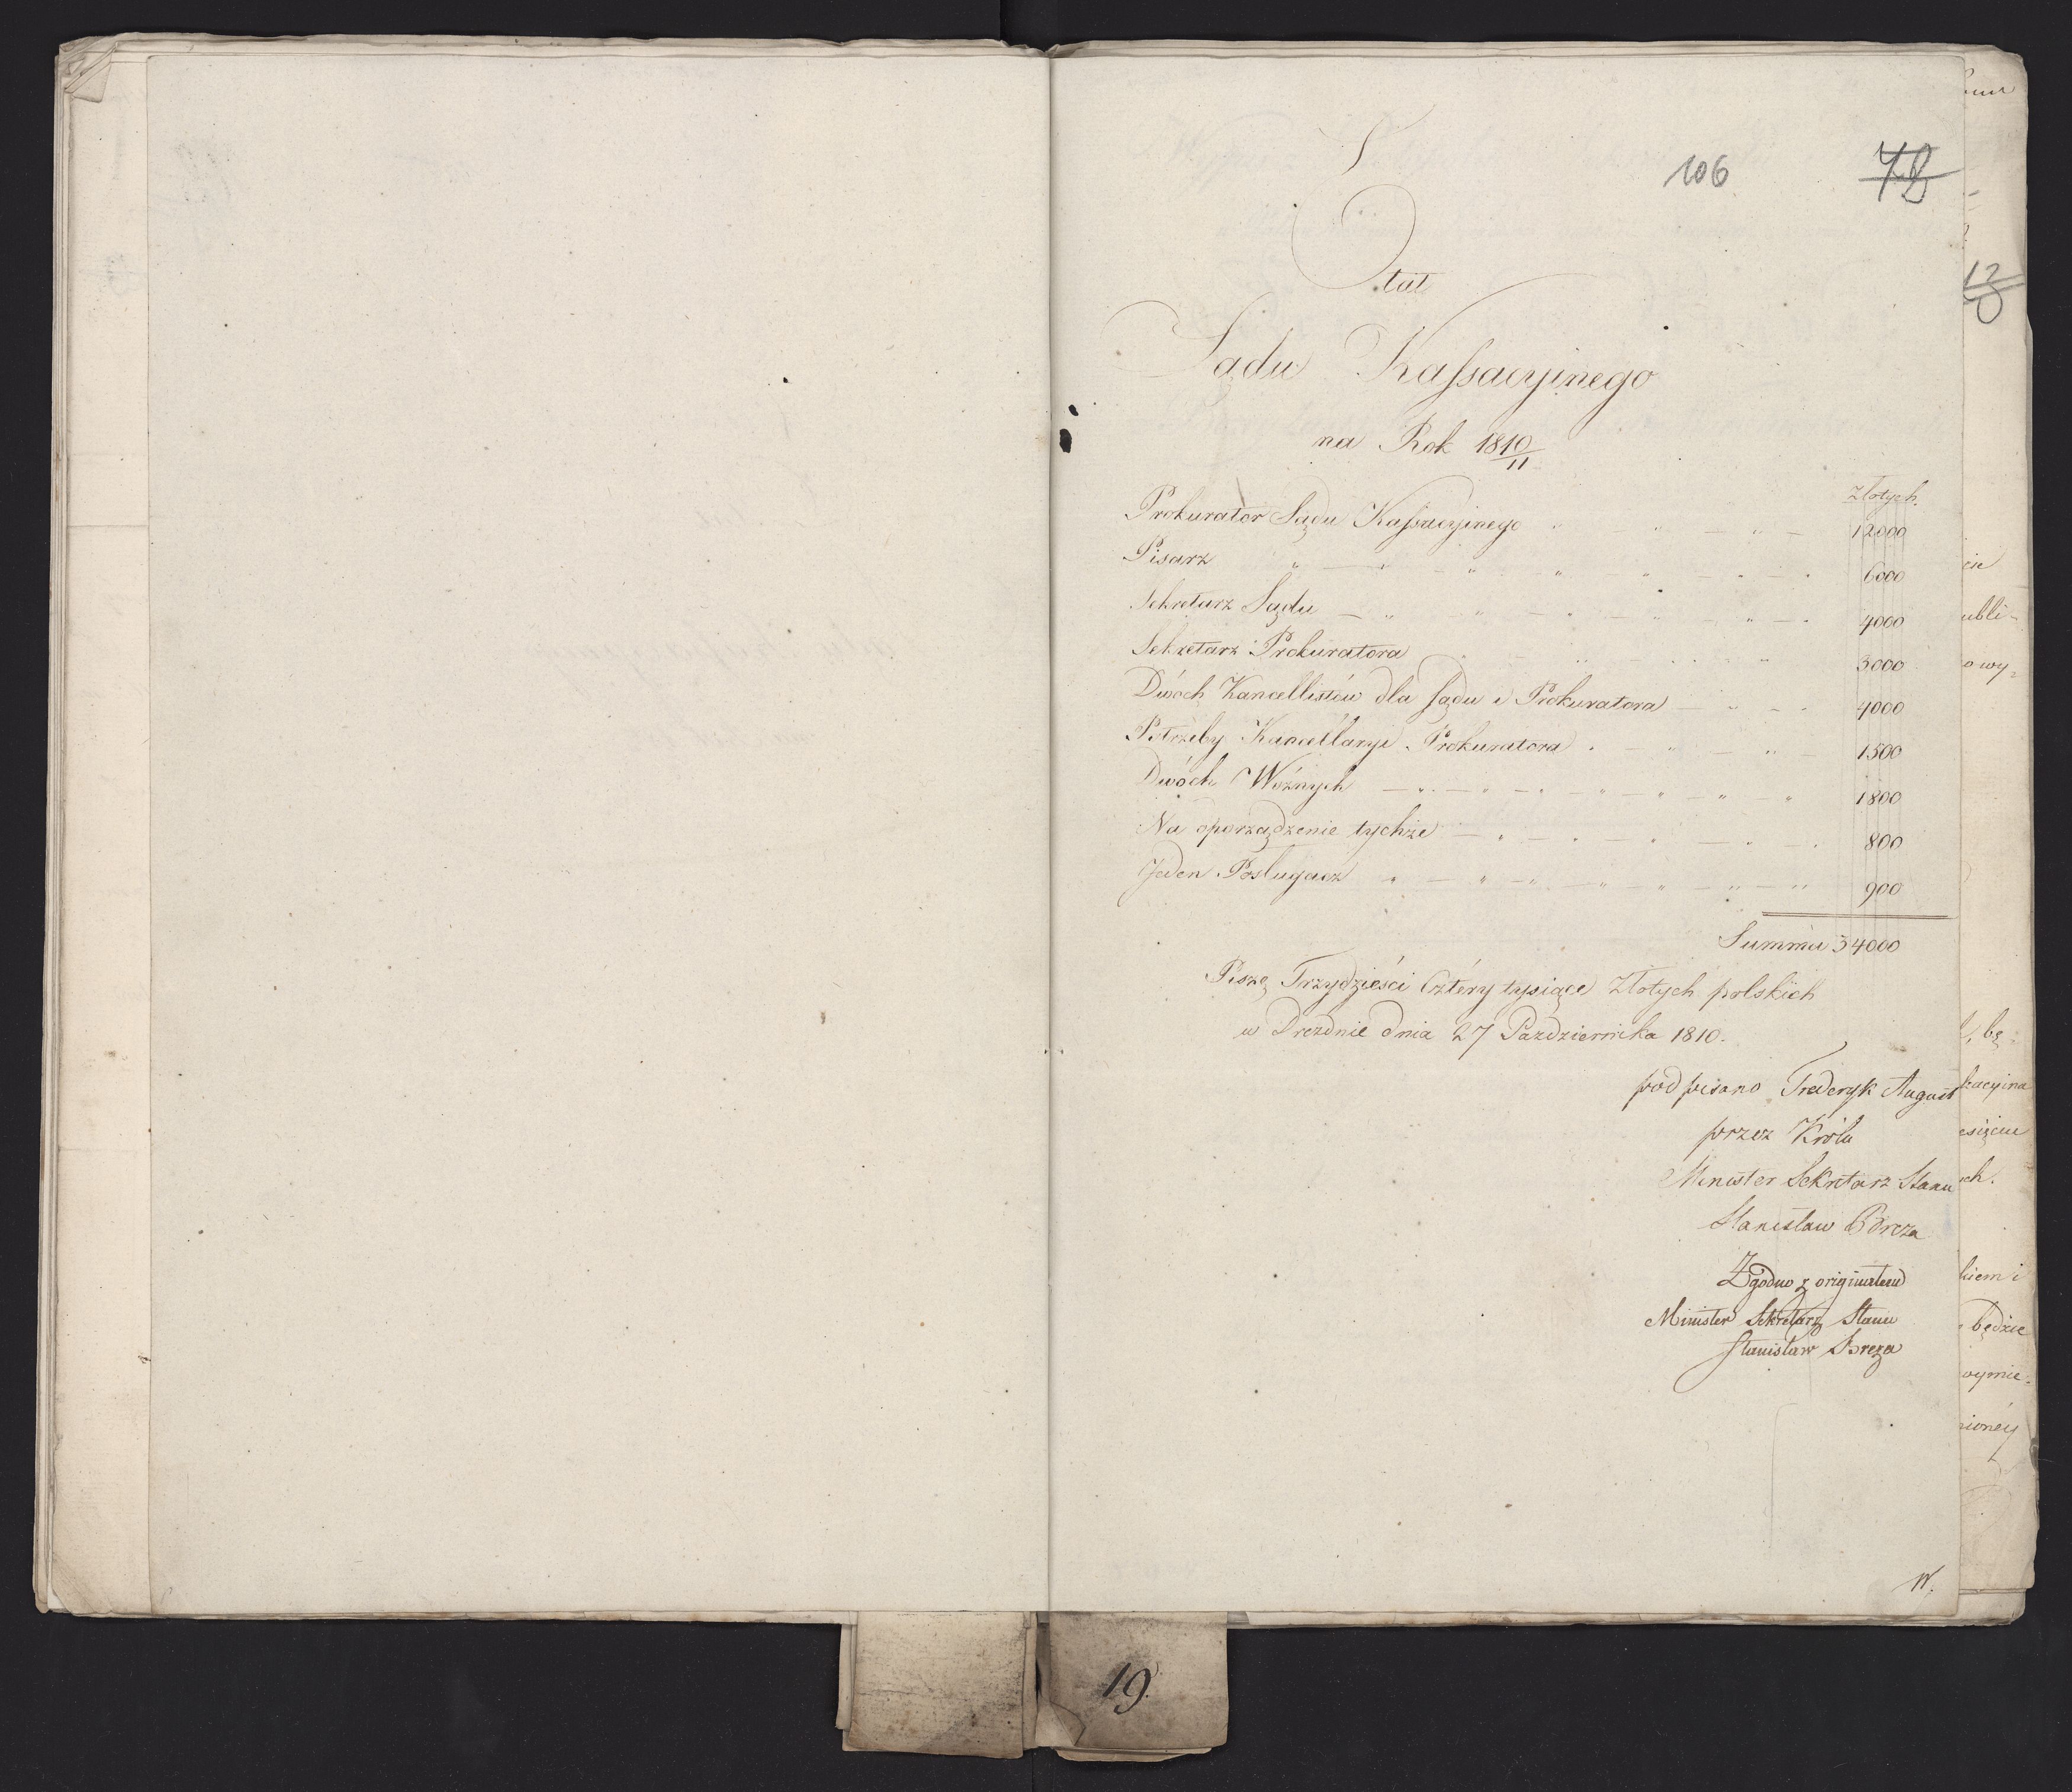 106 78
Etat
Sądu Kassacyjnego
na Rok 1810/11
Złotych.
Prokurator Sądu Kassacyjnego 12000
Pisarz 6000
Sekretarz Sądu 4000
Sekretarz Prokuratora 3000
Dwóch Kancellistów dla Sądu i Prokuratora 4000
Potrzeby Kancellaryi Prokuratora 1500
Dwóch Woźnych 1800
Na oporządzenie tychże 800
Jeden Posługacz 900
Summa 34000
Piszę Trzydzieści Cztéry tysiące Złotych polskich
w Dreznie dnia 27 Pazdziernika 1810.
podpisano Frederyk August
przez Króla
Minister Sekretarz Stanu
Stanisław Breza
Zgodno z originałem
Minister Sekretarz Stanu
Stanisław Breza
19.
12
ubli-
owy-
bę-
kacyina
esięciu
ch.
kiem i
będzie
wymie-
nionéy